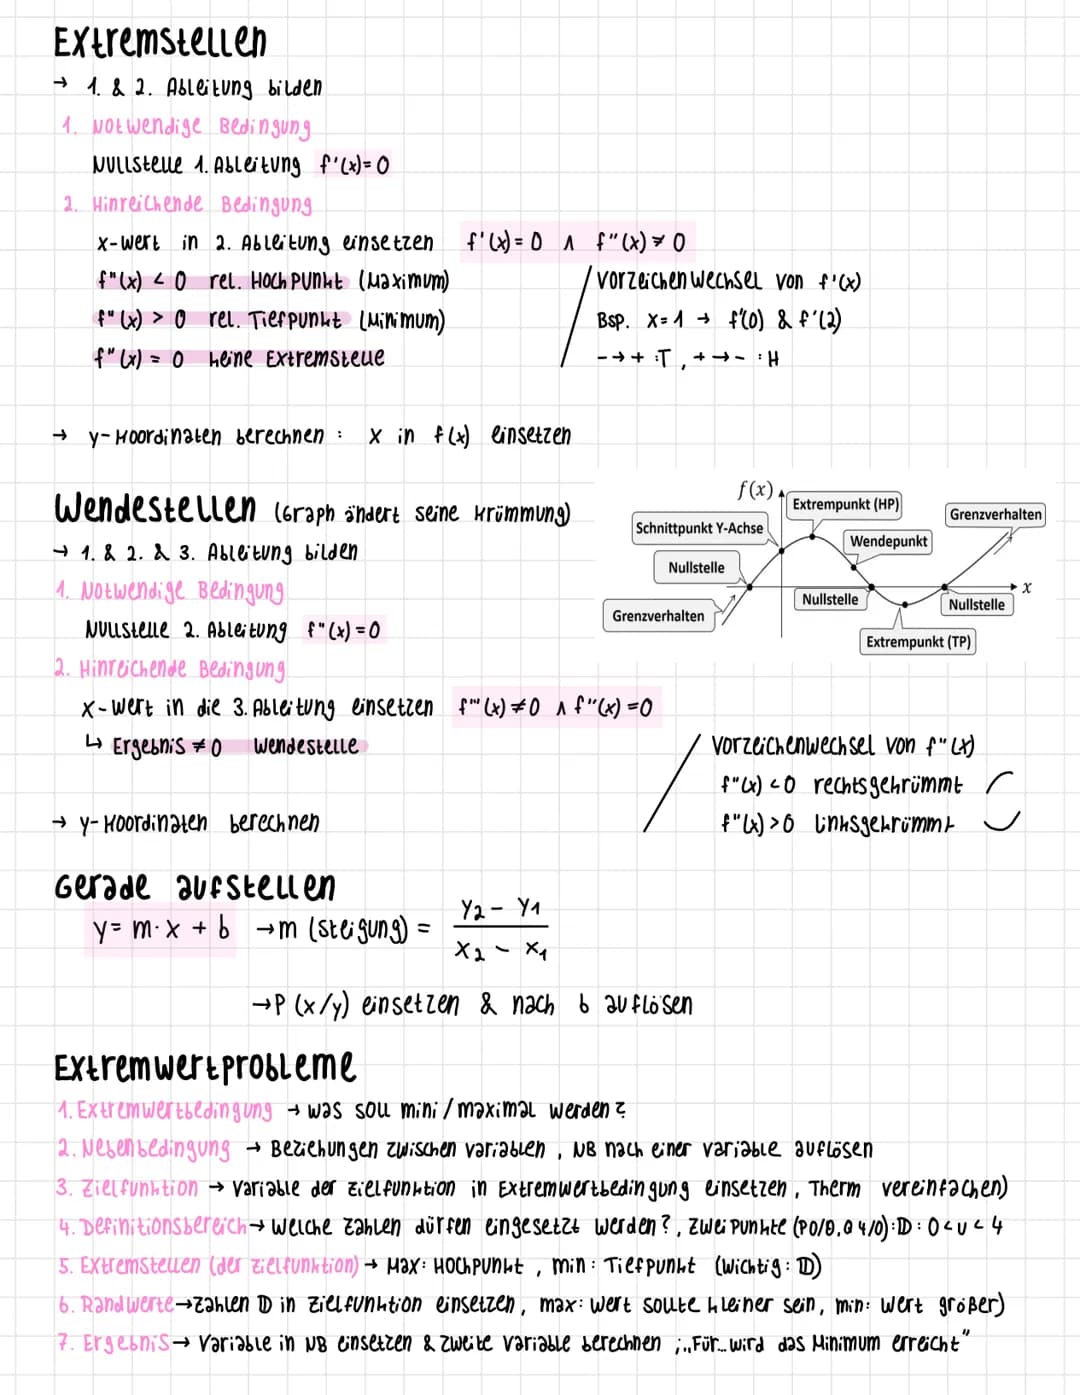 Extremstellen
→ 1. & 2. Ableitung bilden
1. Notwendige Bedingung
Nullstelle 1. Ableitung f'(x)=0
2. Hinreichende Bedingung
x-Wert in 2. Ableitung einsetzen f'(x)=0 ∧ f"(x) ≠ 0
f"(x) < 0 rel. Hochpunkt (Maximum)
/ Vorzeichenwechsel von f'(x)
f"(x) > 0 rel. Tiefpunkt (Minimum)
Bsp. x=1 → f'(0) & f'(2)
f"(x) = 0 keine Extremstelle
-→+ :T , +→- :H
→ y-Koordinaten berechnen : x in f(x) einsetzen
Wendestellen (Graph ändert seine Krümmung)
→ 1. & 2. & 3. Ableitung bilden
1. Notwendige Bedingung
Nullstelle 2. Ableitung f"(x)=0
2. Hinreichende Bedingung
f(x)
Extrempunkt (HP)
Grenzverhalten
Schnittpunkt Y-Achse
Wendepunkt
Nullstelle
x
Nullstelle
Nullstelle
Grenzverhalten
Extrempunkt (TP)
x-Wert in die 3. Ableitung einsetzen f'''(x)≠0 ∧ f''(x)=0
↳ Ergebnis ≠ 0 Wendestelle
/ Vorzeichenwechsel von f"(x)
f"(x) <0 rechtsgekrümmt
f"(x) >0 linksgekrümmt
→ y-Koordinaten berechnen
Gerade aufstellen
y = m·x + b → m (Steigung) = y2 - y1 / x2 - x1
→ P (x/y) einsetzen & nach b auflösen
Extremwertprobleme
1. Extremwertbedingung → was soll mini/maximal werden?
2. Nebenbedingung → Beziehungen zwischen Variablen , NB nach einer Variable auflösen
3. Zielfunktion → Variable der Zielfunktion in Extremwertbedingung einsetzen, Therm vereinfachen)
4. Definitionsbereich → Welche Zahlen dürfen eingesetzt werden?, zwei Punkte (P0/0,Q 4/0): D : 0<u<4
5. Extremstellen (der Zielfunktion) → Max: Hochpunkt , min: Tiefpunkt (Wichtig: D)
6. Randwerte → Zahlen D in Zielfunktion einsetzen, max: Wert sollte kleiner sein, min: Wert größer)
7. Ergebnis → Variable in NB einsetzen & zweite Variable berechnen ; „Für...wird das Minimum erreicht"